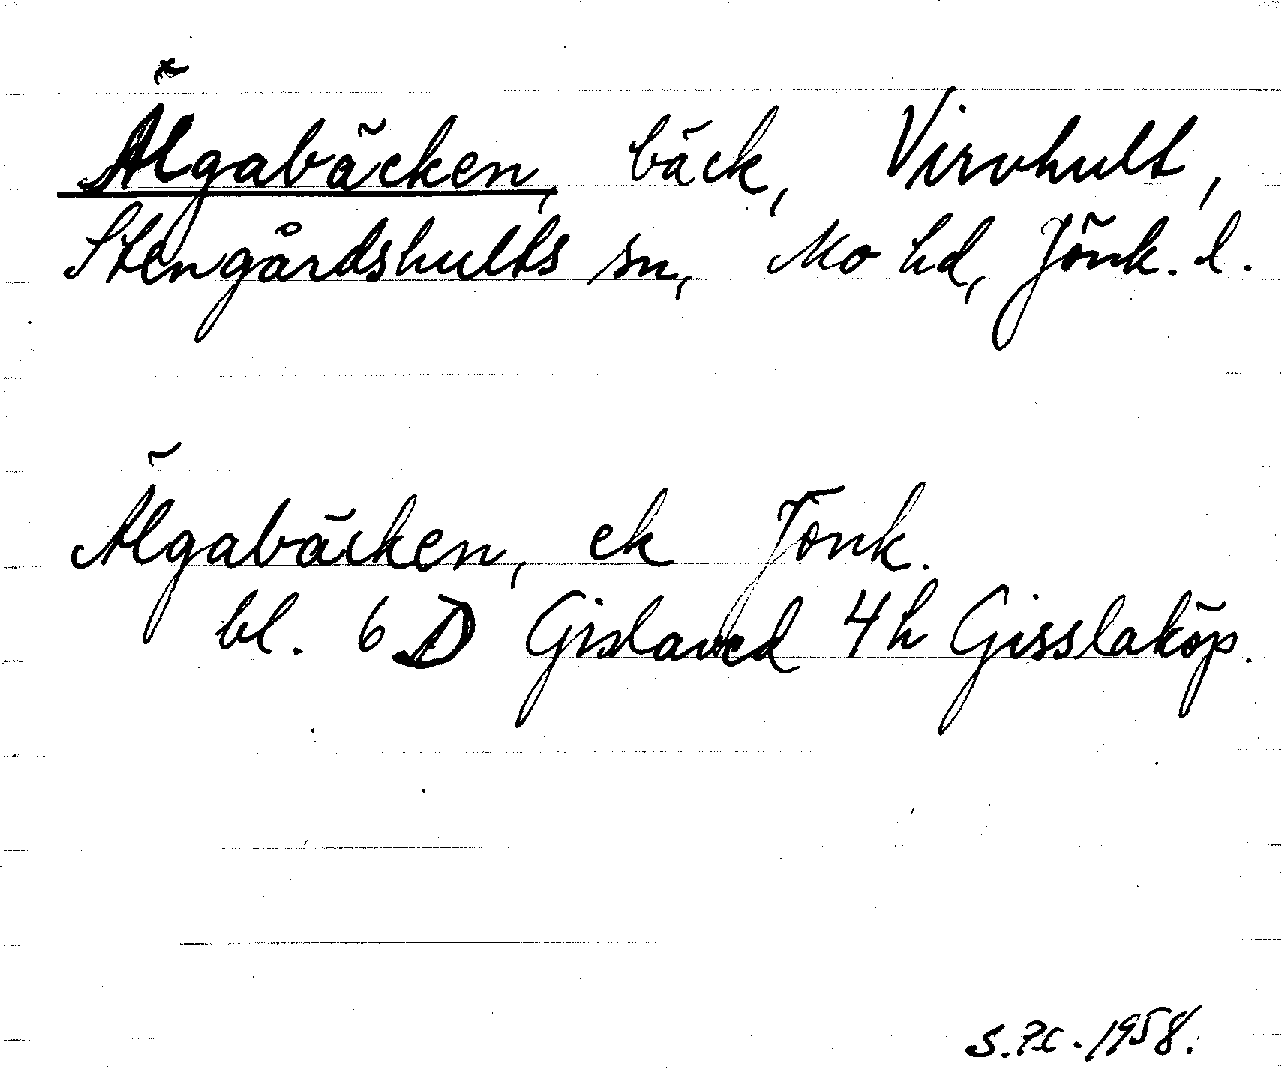 Älgabäcken, bäck, Virvhult,
Stengårdshults sn, Mo hd, Jönk. l.
Älgabäcken, ek Jönk.
bl. 6 D Gislaved 4h Gisslaköp.
1958.